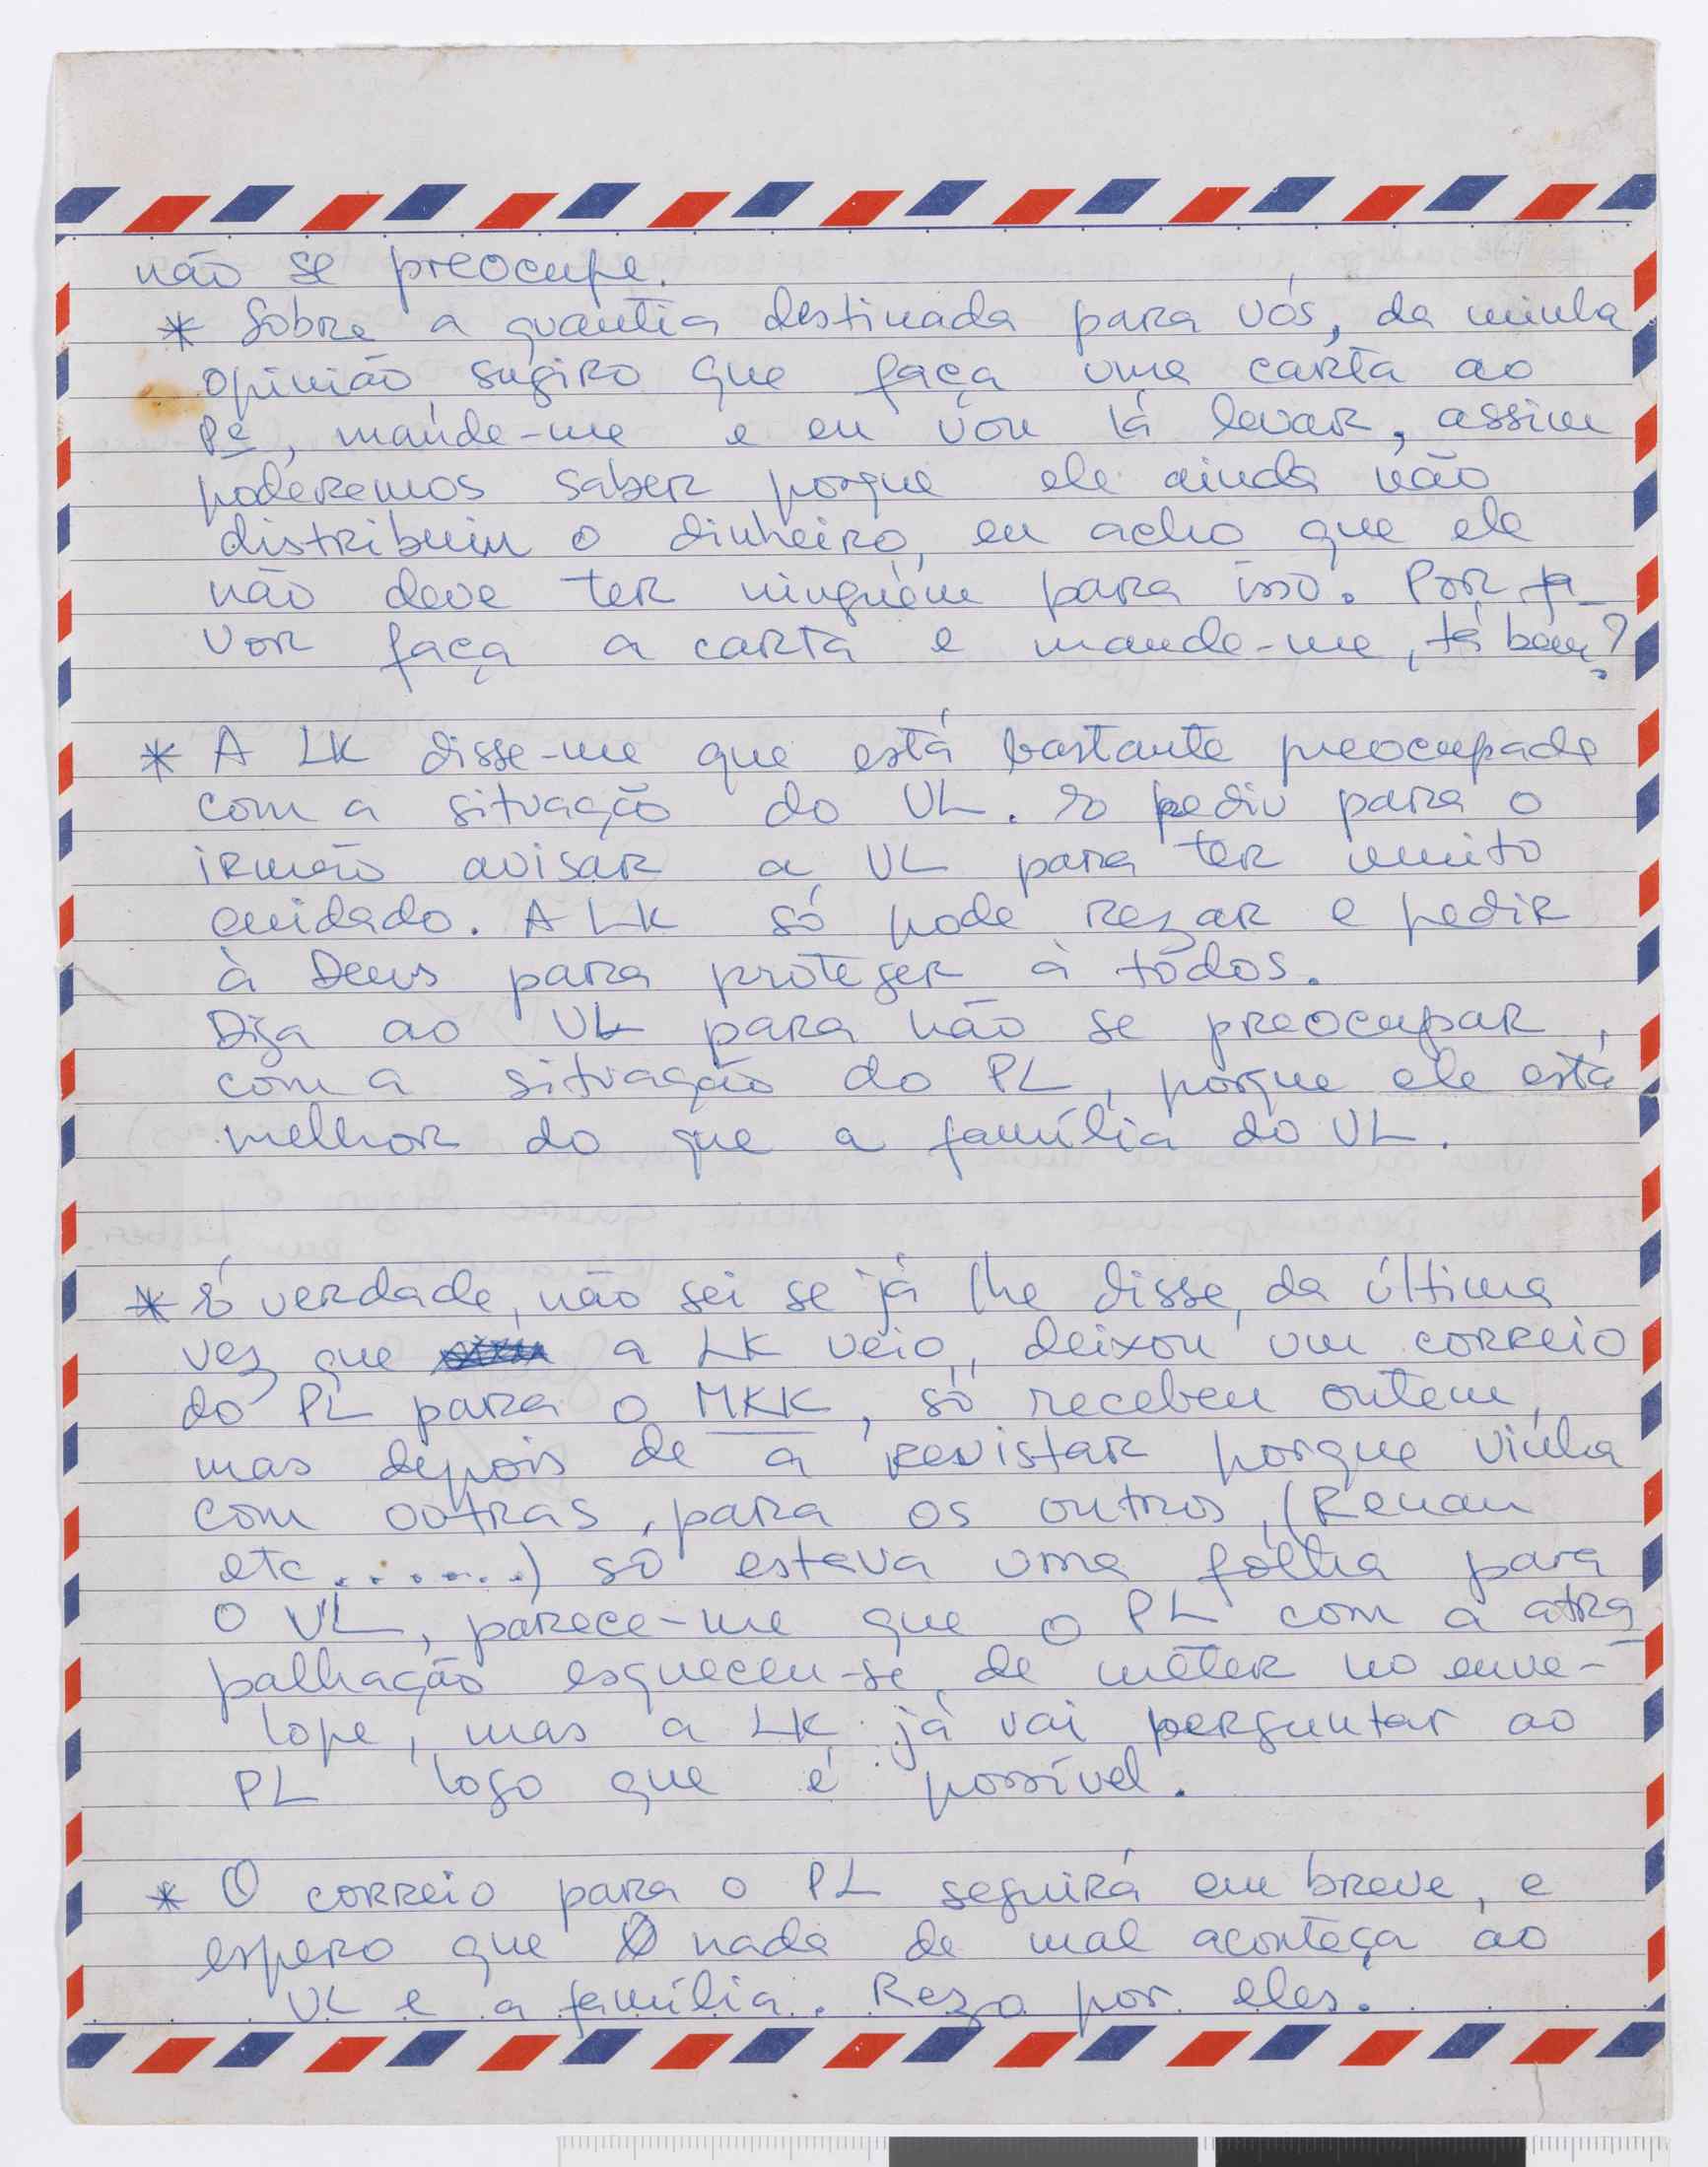 não se preocupe.
* Sobre a quantia destinada para vós, da minha
opinião, sugiro que faça uma carta ao
Pe, mande-me e eu vou lá levar, assim
poderemos saber porque ele ainda não
distribuiu o dinheiro, eu acho que ele
não deve ter ninguém para isso. Por fa-
vor faça a carta e mande-me, tá bem?
* A LK disse-me que está bastante preocupada
com a situação do VL. E pediu para o
irmão avisar a VL para ter muito
cuidado. A LK só pode rezar e pedir
à Deus para proteger à todos.
Diga ao VL para não se preocupar
com a situação do PL, porque ele está
melhor do que a família do VL.
* É verdade, não sei se já lhe disse, da última
vez que a LK veio, deixou um correio
do PL para o MKK, só recebeu ontem,
mas depois de a revistar porque vinha
com outras, para os outros, (Renan
etc.......) só estava uma fôlha para
O VL, parece-me que o PL com a atra
palhação esqueceu-se de meter no enve-
lope, mas a LK já vai perguntar ao
PL logo que é possível.
* O correio para o PL seguirá em breve, e
espero que nada de mal aconteça ao
VL e a família. Rezo por eles.